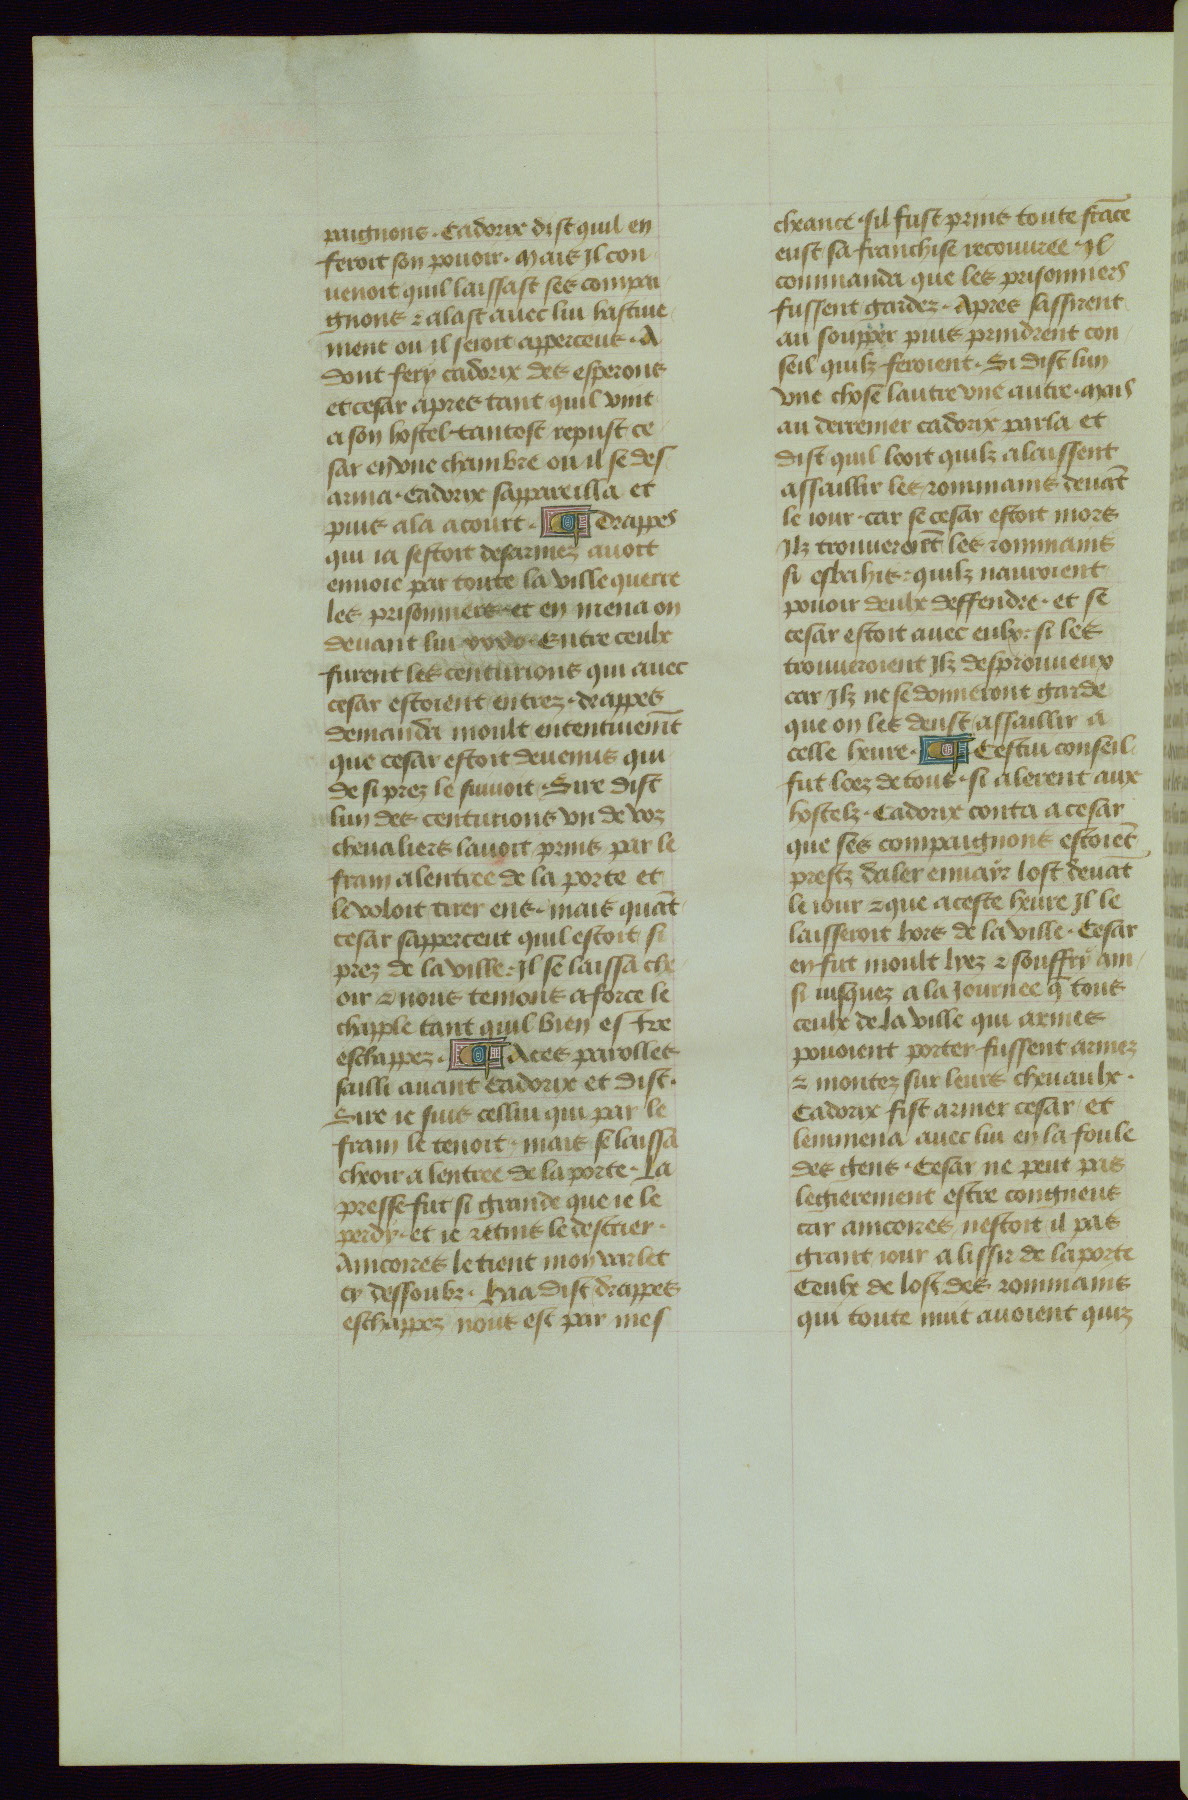 paignons · Cadorix dist quil en
feroit son pouoir · Mais Il con
uenoit quil laissast ses compai
gnons ⁊ alast auec lui hastiue
ment ou il seroit apperceus · A
dont fery cadorix des esperons
et cesar apres tant quil vint
a son hostel · tantost repust ce
sar en vne chambre ou il se des
arma · Cadorix sappareilla et
puis ala a court · Drappes
qui ia sestoit desarmez auoit
enuoie par toute la ville querre
les prisonniers · et en mena on
deuant lui xxxx · Entre ceulx
furent les centurions qui auec
cesar estoient entrez · drappes
demanda moult ententiuemt̄
que cesar estoit deuenus qui
de si prez le suiuoit · Sire dist
lun des centurions vn de voz
cheualiers lauoit prins par le
frain a lentree de la porte et
le voloit tirer ens · mais quāt
cesar sapperceut quil estoit si
prez de la ville : Il se laissa che
oir ⁊ nous tenions a force le
chapple tant quil bien es tre
eschappez · A ces parolles
sailli auant Cadorix et dist ·
Sire ie suis cellui qui par le
frain le tenoit · mais se laissa
cheoir a lentree de la porte · La
presse fut si grande que ie le
perdy · et ie retins le destrier ·
Aincores le tient mon varlet
cy dessoubz · Haa dist drappes
eschappez nous est par mes
cheance · sil fust prins toute frāce
eust sa franchise recouuree · Il
commanda que les prisonniers
fussent gardez · Apres sassirent
au soupper puis prindrent con
seil quilz feroient · Si dist lun
vne chose lautre vne autre · mais
au derrenier cadorix parla et
dist quil looit quilz alaissent
assaillir les rommains deuāt
le iour · car se cesar estoit mors
Ilz trouueroiēt les rommains
si esbahis : quilz nauroient
pouoir deulx deffendre · et se
cesar estoit auec eulx : si les
trouueroient Ilz despourueux
car Ilz ne se donneront garde
que on les deust assaillir a
celle heure · Cestui conseil
fut loez de tous · si alerent aux
hostelz · Cadorix conta a cesar
que ses compaignons estoiēt
prestz daler enuayr lost deuāt
le iour ⁊ que a ceste heure Il le
laisseroit hors de la ville · Cesar
en fut moult lyez ⁊ souffry ain
si iusquez a la Journee q̄ tous
ceulx de la ville qui armes
pouoient porter fussent armez
⁊ montez sur leurs cheuaulx ·
Cadorix fist armer cesar / et
lemmena auec lui en la foule
des gens · Cesar ne peut pas
legierement estre congneus
car aincores nestoit il pas
grant iour a lissir de la porte
Ceulx de lost des rommains
qui toute nuit auoient quiz